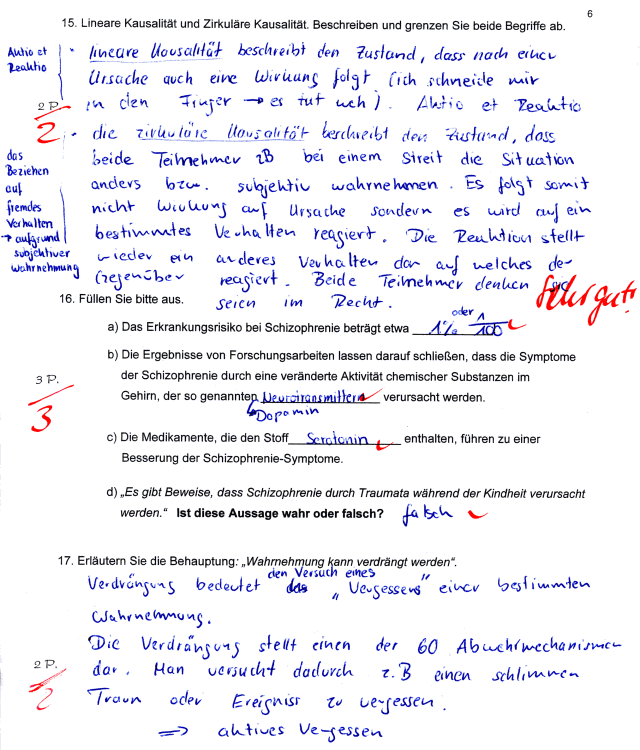 6
15. Lineare Kausalität und Zirkuläre Kausalität. Beschreiben und grenzen Sie beide Begriffe ab.
Aktio et
Reaktio
• lineare Kausalität beschreibt den Zustand, dass nach einer
Ursache auch eine Wirkung folgt (ich schneide mir
2 P.
2
in den Finger → es tut weh). Aktio et Reaktio
• die zirkuläre Kausalität beschreibt den Zustand, dass
das
Beziehen
auf
fremdes
Verhalten
→ aufgrund
subjektiver
Wahrnehmung
beide Teilnehmer zB bei einem Streit die Situation
anders bzw. subjektiv wahrnehmen. Es folgt somit
nicht Wirkung auf Ursache sondern es wird auf ein
bestimmtes Verhalten reagiert. Die Reaktion stellt
wieder ein anderes Verhalten dar auf welches de-
Gegenüber reagiert. Beide Teilnehmer denken sie
seien im Recht.
Sehr gut!
16. Füllen Sie bitte aus.
a) Das Erkrankungsrisiko bei Schizophrenie beträgt etwa 1% oder 1/100
b) Die Ergebnisse von Forschungsarbeiten lassen darauf schließen, dass die Symptome
der Schizophrenie durch eine veränderte Aktivität chemischer Substanzen im
3 P.
3
Gehirn, der so genannten Neurotransmittern verursacht werden.
↳ Dopamin
c) Die Medikamente, die den Stoff Serotonin enthalten, führen zu einer
Besserung der Schizophrenie-Symptome.
d) „Es gibt Beweise, dass Schizophrenie durch Traumata während der Kindheit verursacht
werden.“ Ist diese Aussage wahr oder falsch? falsch
17. Erläutern Sie die Behauptung: „Wahrnehmung kann verdrängt werden“.
Verdrängung bedeutet den Versuch eines „Vergessens“ einer bestimmten
Wahrnehmung.
Die Verdrängung stellt einen der 60 Abwehrmechanismen
2 P.
2
dar. Man versucht dadurch z.B einen schlimmen
Traum oder Ereigniss zu vergessen.
⇒ aktives Vergessen